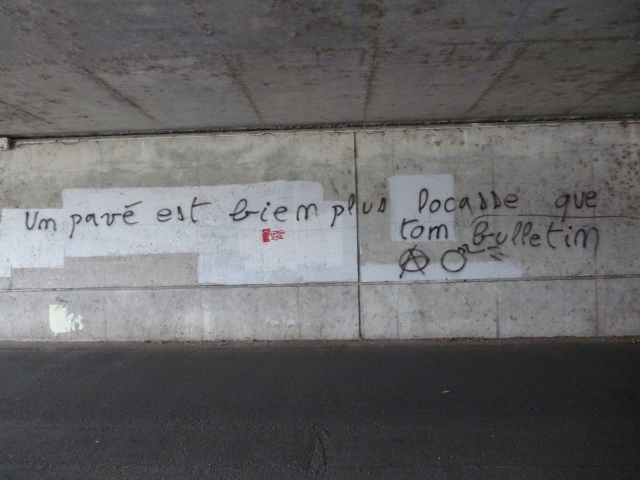 Un pavé est bien plus locasse que
ton bulletin